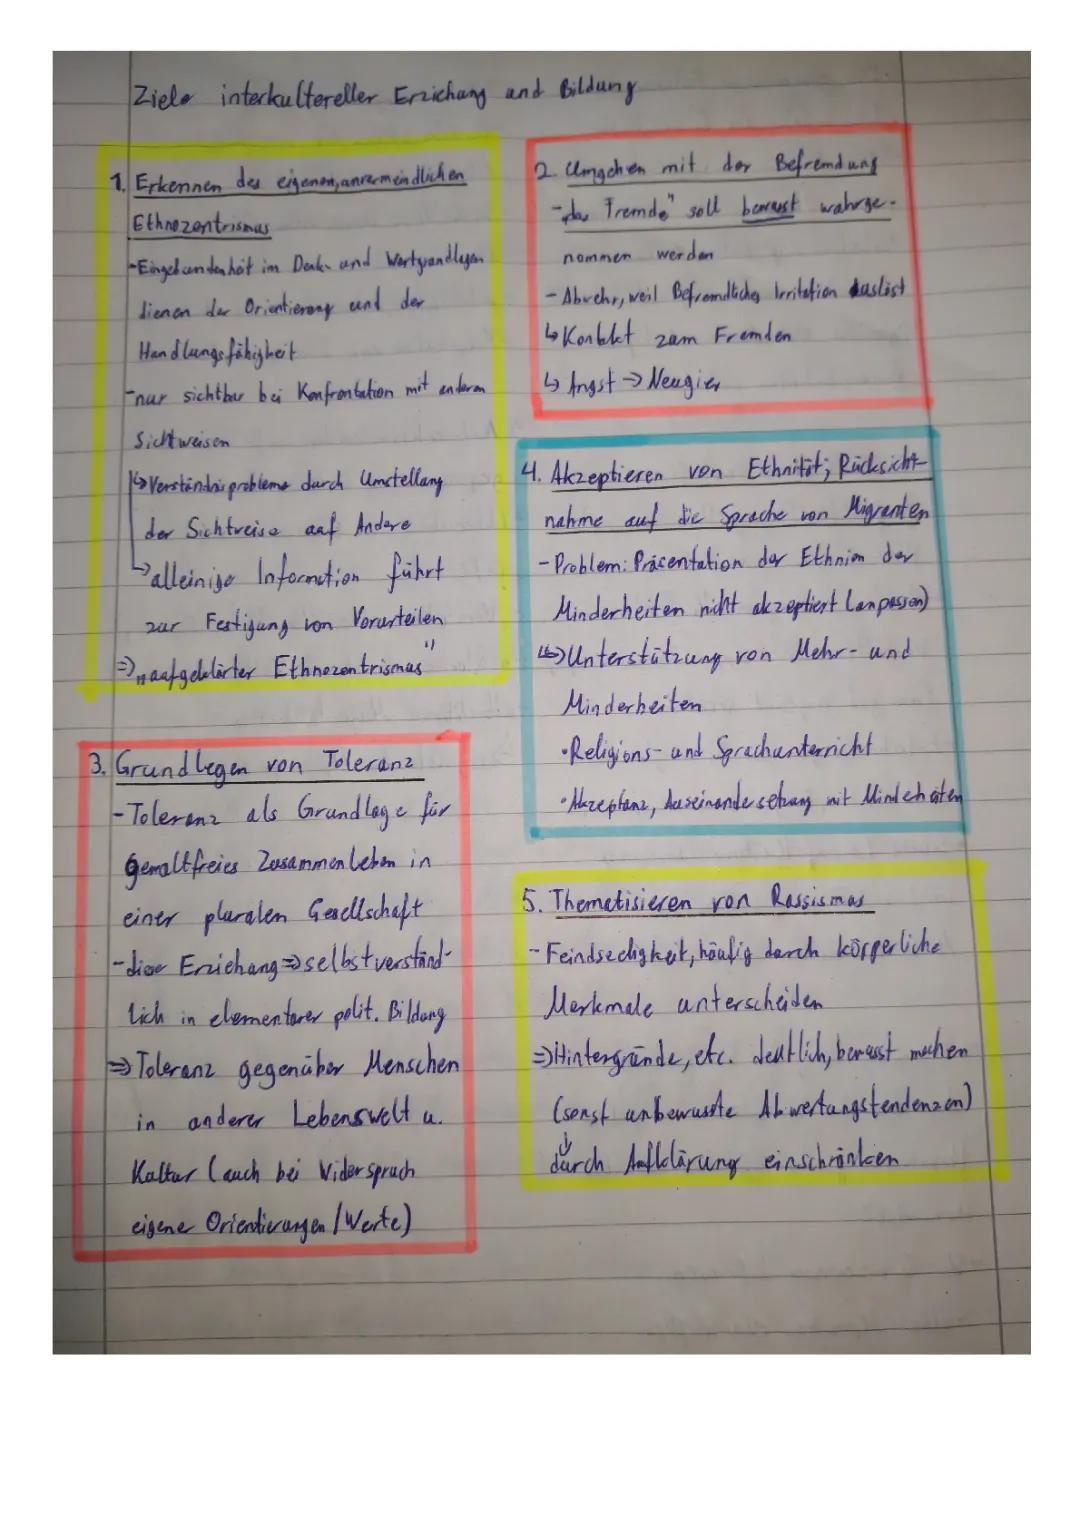 Ziele interkultereller Erziehung und Bildung
1. Erkennen des eigenen, unvermeindlichen
Ethnozentrismus
-Eingebundenheit im Denk- und Wertgrundlagen
dienen der Orientierung und der
Handlungsfähigkeit
-nur sichtbar bei Konfrontation mit anderen
Sichtweisen
↳Verständnisprobleme durch Umstellung
der Sichtweise auf Andere
↳alleinige Information führt
zur Festigung von Vorurteilen
⇒„aufgeklärter Ethnozentrismus"
2. Umgehen mit der Befremdung
-„das Fremde" soll bewusst wahrge-
nommen werden
- Abwehr, weil Befremdliches Irritation auslöst
↳ Kontakt zum Fremden
↳ Angst → Neugier
3. Grundlegen von Toleranz
-Toleranz als Grundlage für
gewaltfreies Zusammenleben in
einer pluralen Gesellschaft
-diese Erziehung⇒selbstverständ-
lich in elementarer polit. Bildung
⇒Toleranz gegenüber Menschen
in anderer Lebenswelt u.
Kultur (auch bei Widerspruch
eigener Orientierungen/Werte)
4. Akzeptieren von Ethnität; Rücksicht-
nahme auf die Sprache von Migranten
-Problem: Präsentation der Ethnien der
Minderheiten nicht akzeptiert (anpassen)
↳Unterstützung von Mehr- und
Minderheiten
•Religions- und Sprachunterricht
•Akzeptanz, Auseinandersetzung mit Minderheiten
5. Thematisieren von Rassismus
- Feindseeligkeit, häufig durch körperliche
Merkmale unterscheiden
⇒Hintergründe, etc. deutlich, bewusst machen
(sonst unbewusste Abwertungstendenzen)
↓
durch Aufklärung einschränken